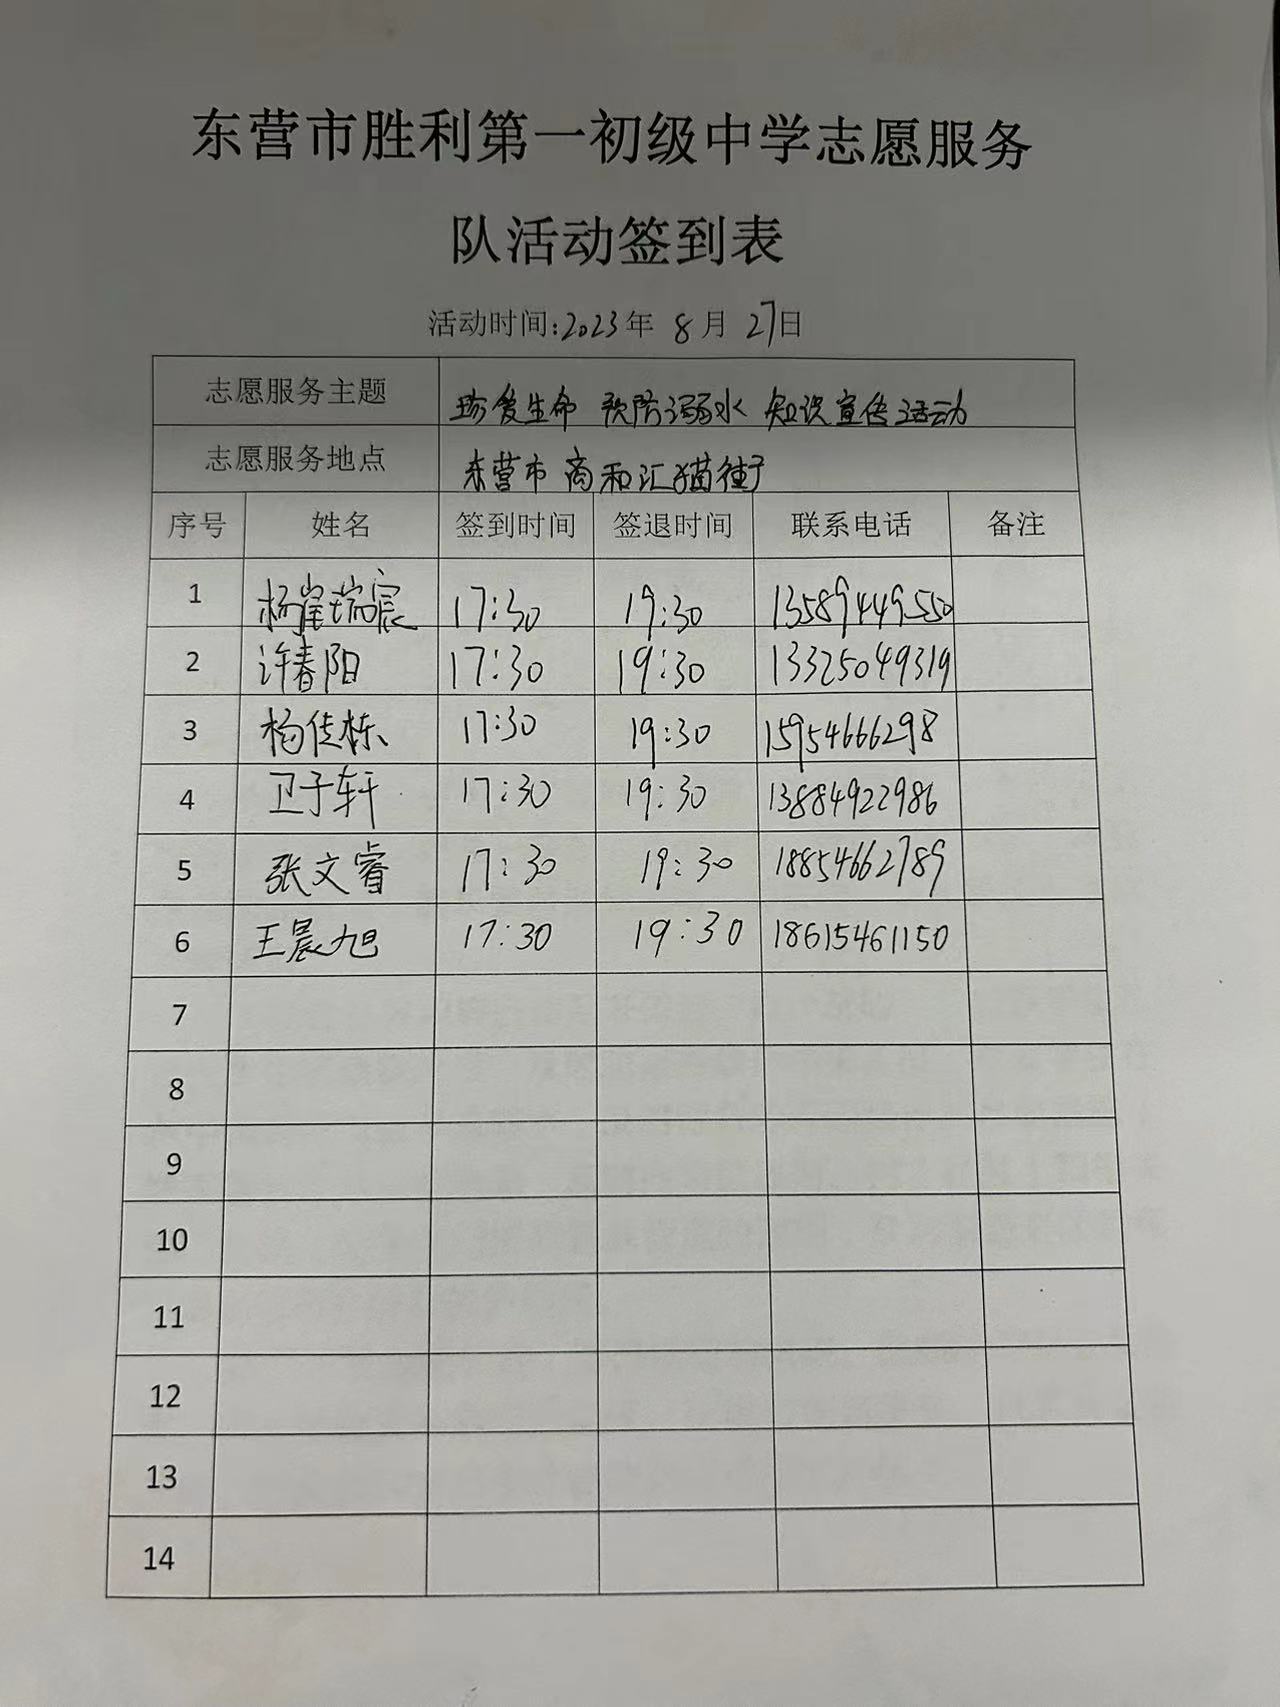 东营市胜利第一初级中学志愿服务
队活动签到表
活动时间:2023年 8月 27日
志愿服务主题 珍爱生命 预防溺水 知识宣传活动
志愿服务地点 东营市 商和汇猫街
序号 姓名 签到时间 签退时间 联系电话 备注
1 杨崔瑞宸 17:30 19:30 13589449550
2 许春阳 17:30 19:30 13325049319
3 杨佳栋 17:30 19:30 15954666298
4 卫子轩 17:30 19:30 13884922986
5 张文睿 17:30 19:30 18854662789
6 王晨旭 17:30 19:30 18615461150
7
8
9
10
11
12
13
14